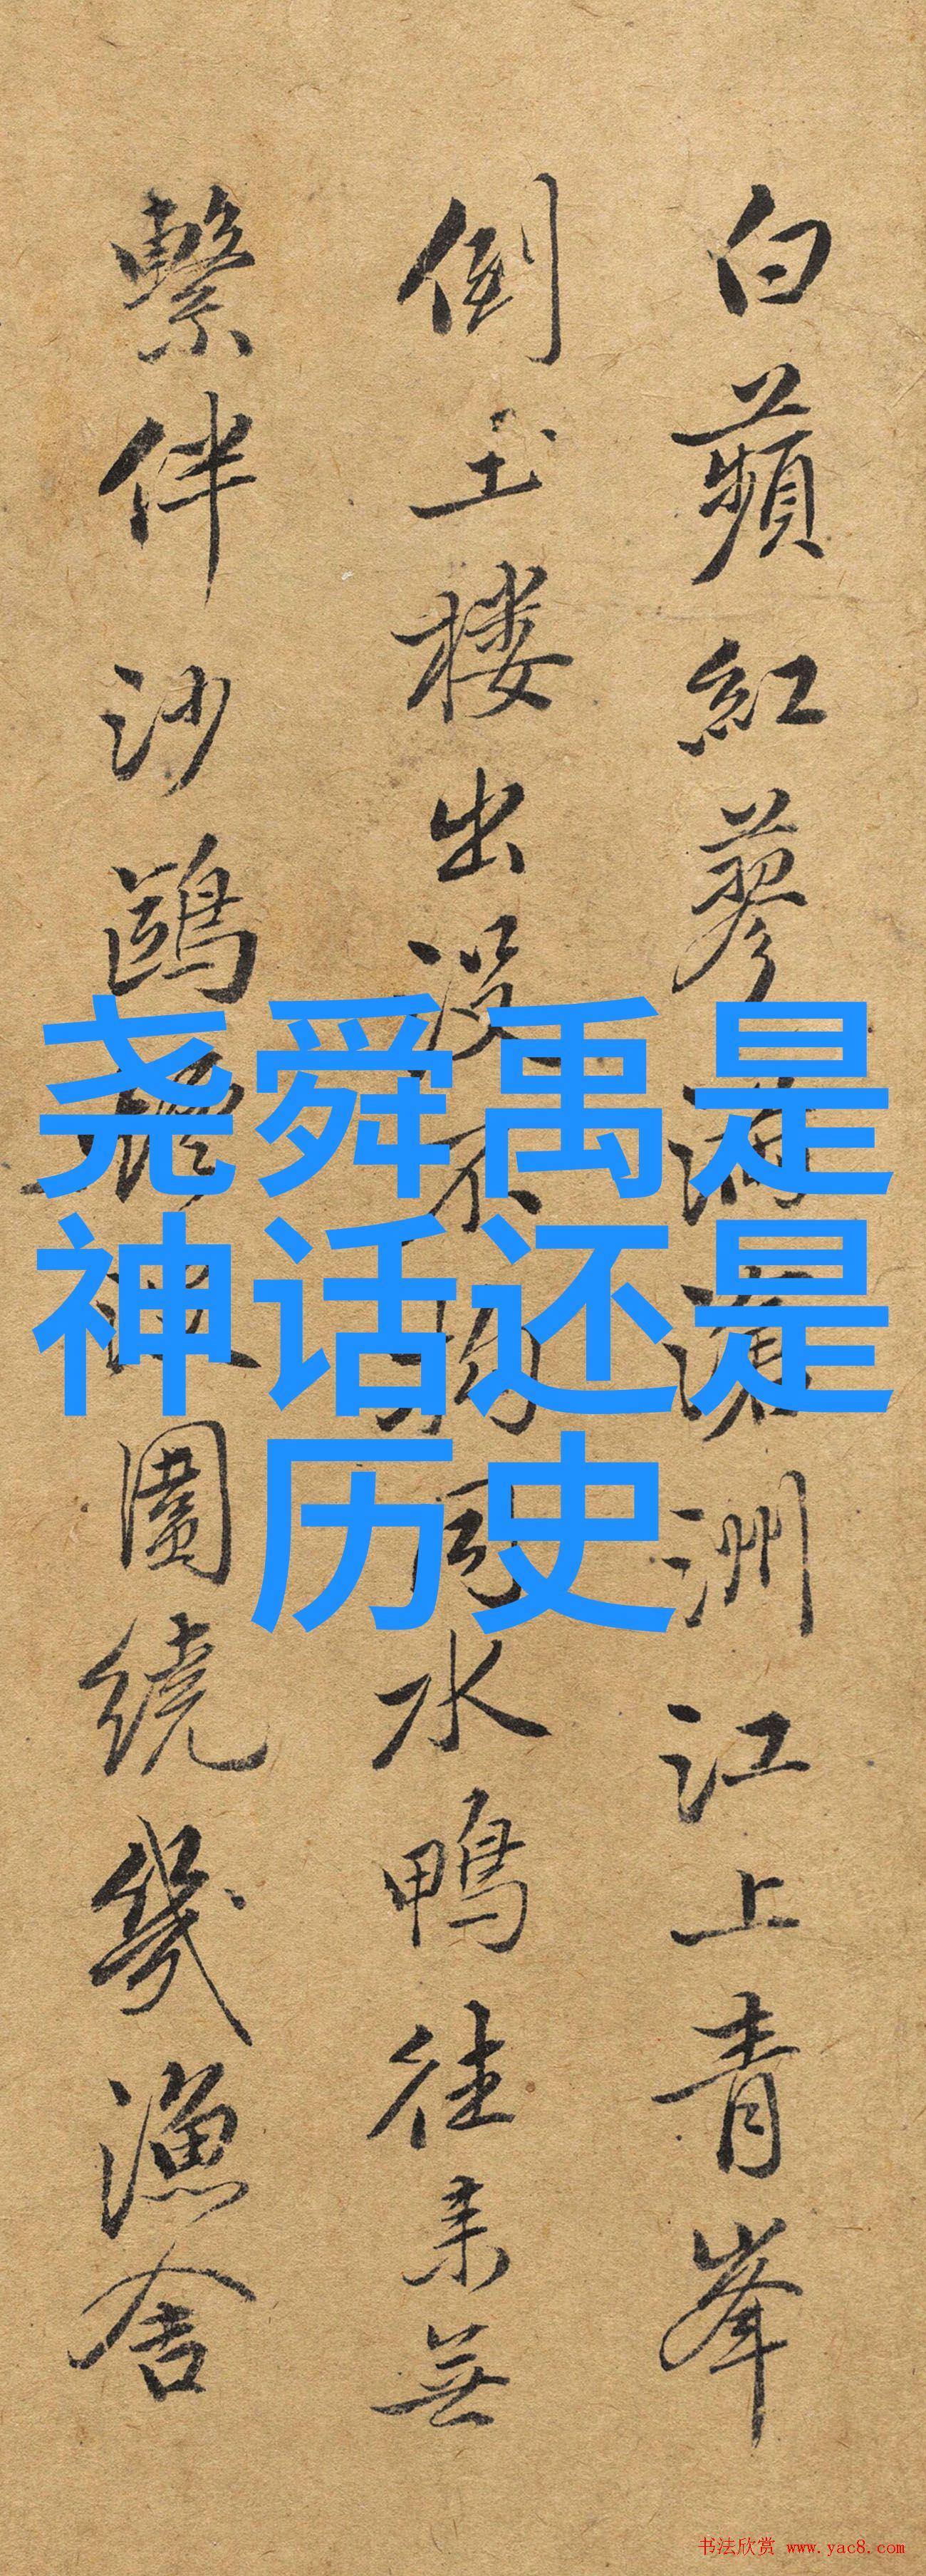 白蘋紅蓼滿滄洲江上青峯
倒玉楼出没不拘風水鴨往来無
繫伴沙鷗圍繞幾漁舍
尧舜禹是
神话还是
历史
书法欣赏 www.yac8.com